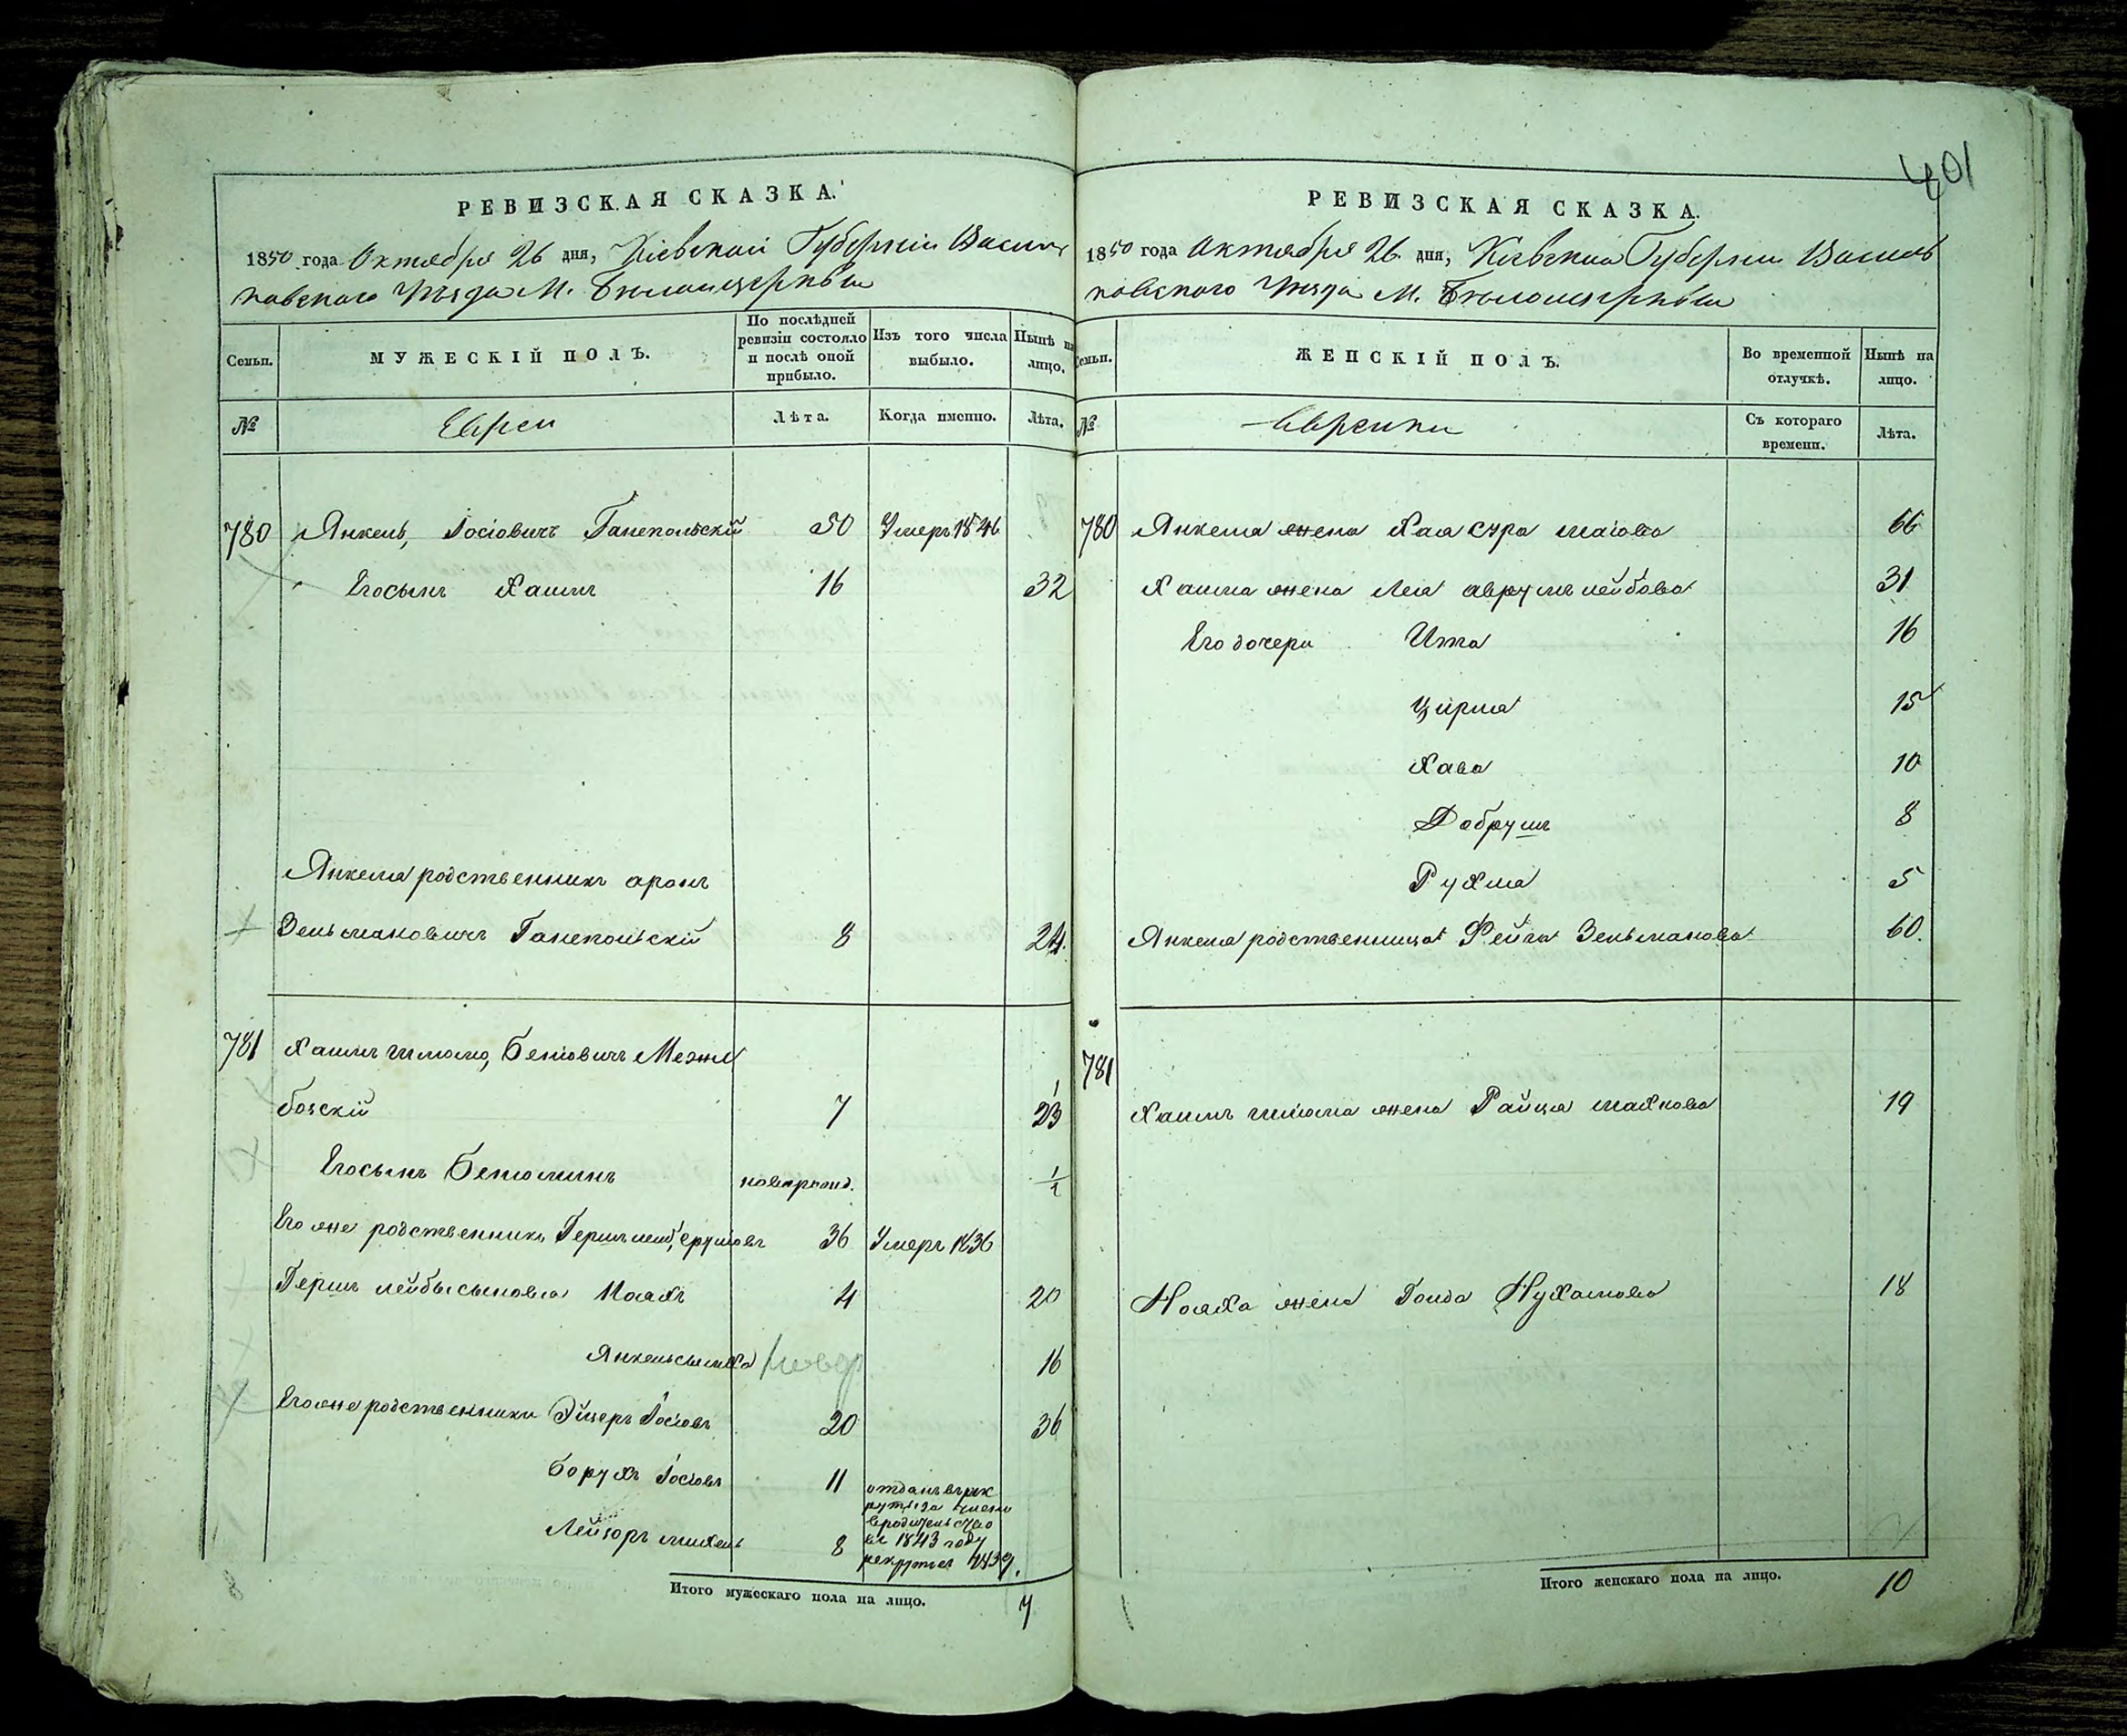 401
РЕВИЗСКАЯ СКАЗКА.
1850 года Октября 26 дня, Кіевской Губерніи Василь
ковскаго Уѣзда М. Бѣлоцерковки
Семьи.
МУЖЕСКІЙ ПОЛЪ.
По послѣдней ревизіи состояло и послѣ оной прибыло.
Изъ того числа выбыло.
Нынѣ на лицо.
№
Евреи
Лѣта.
Когда именно.
Лѣта.
780 Янкель, Іосіовичъ Ганепольскій 50 Умеръ 1846
Егосынъ Хаимъ 16 32
Янкеля родственникъ аронъ
Зельмановичъ Ганепольскій 8 24.
781 Хаимъ шлома, Беніовичъ Межи
божскій 7 23
Егосынъ Беніоминъ новорожд. 1/2
Его же родственникъ Гершълейб, 36 Умеръ 1836
Гершъ лейбы сыновья Ноахъ 4 20
Янкельсимха новор 16
Егоже родственники Эйзеръ Іосіовъ 20 36
Борухъ Іосіовъ 11 отданъ въ рек
руты за
въ 1843 году
Лейзоръ михель 8 рекруты 1839.
Итого мужескаго пола на лицо. 7
РЕВИЗСКАЯ СКАЗКА.
1850 года Октября 26 дня, Кіевской Губерніи Василь
ковскаго Уѣзда М. Бѣлоцерковки
Семьи.
ЖЕНСКІЙ ПОЛЪ.
Во временной отлучкѣ.
Нынѣ на лицо.
№
Еврейки
Съ котораго времени.
Лѣта.
780 Янкеля жена Хая сура маіова 66
Хаима жена Лея аврумълейбова 31
Его дочери Ита 16
Цирля 15
Хава 10
Добрушъ 8
Рухля 5
Янкеля родственница Фейга Зельманова 60.
781
Хаимъ шлома жена Райця малкова 19
Ноаха жена Голда Нухамова 18
Итого женскаго пола на лицо. 10